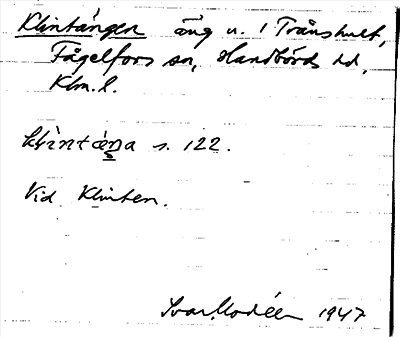 Klintängen äng u. 1 Trånshult,
Fågelfors sn, Handbörds hd,
Klm. l.
klìntä́ŋa s. 122.
Vid Klinten.
Ivar Modéer 1947